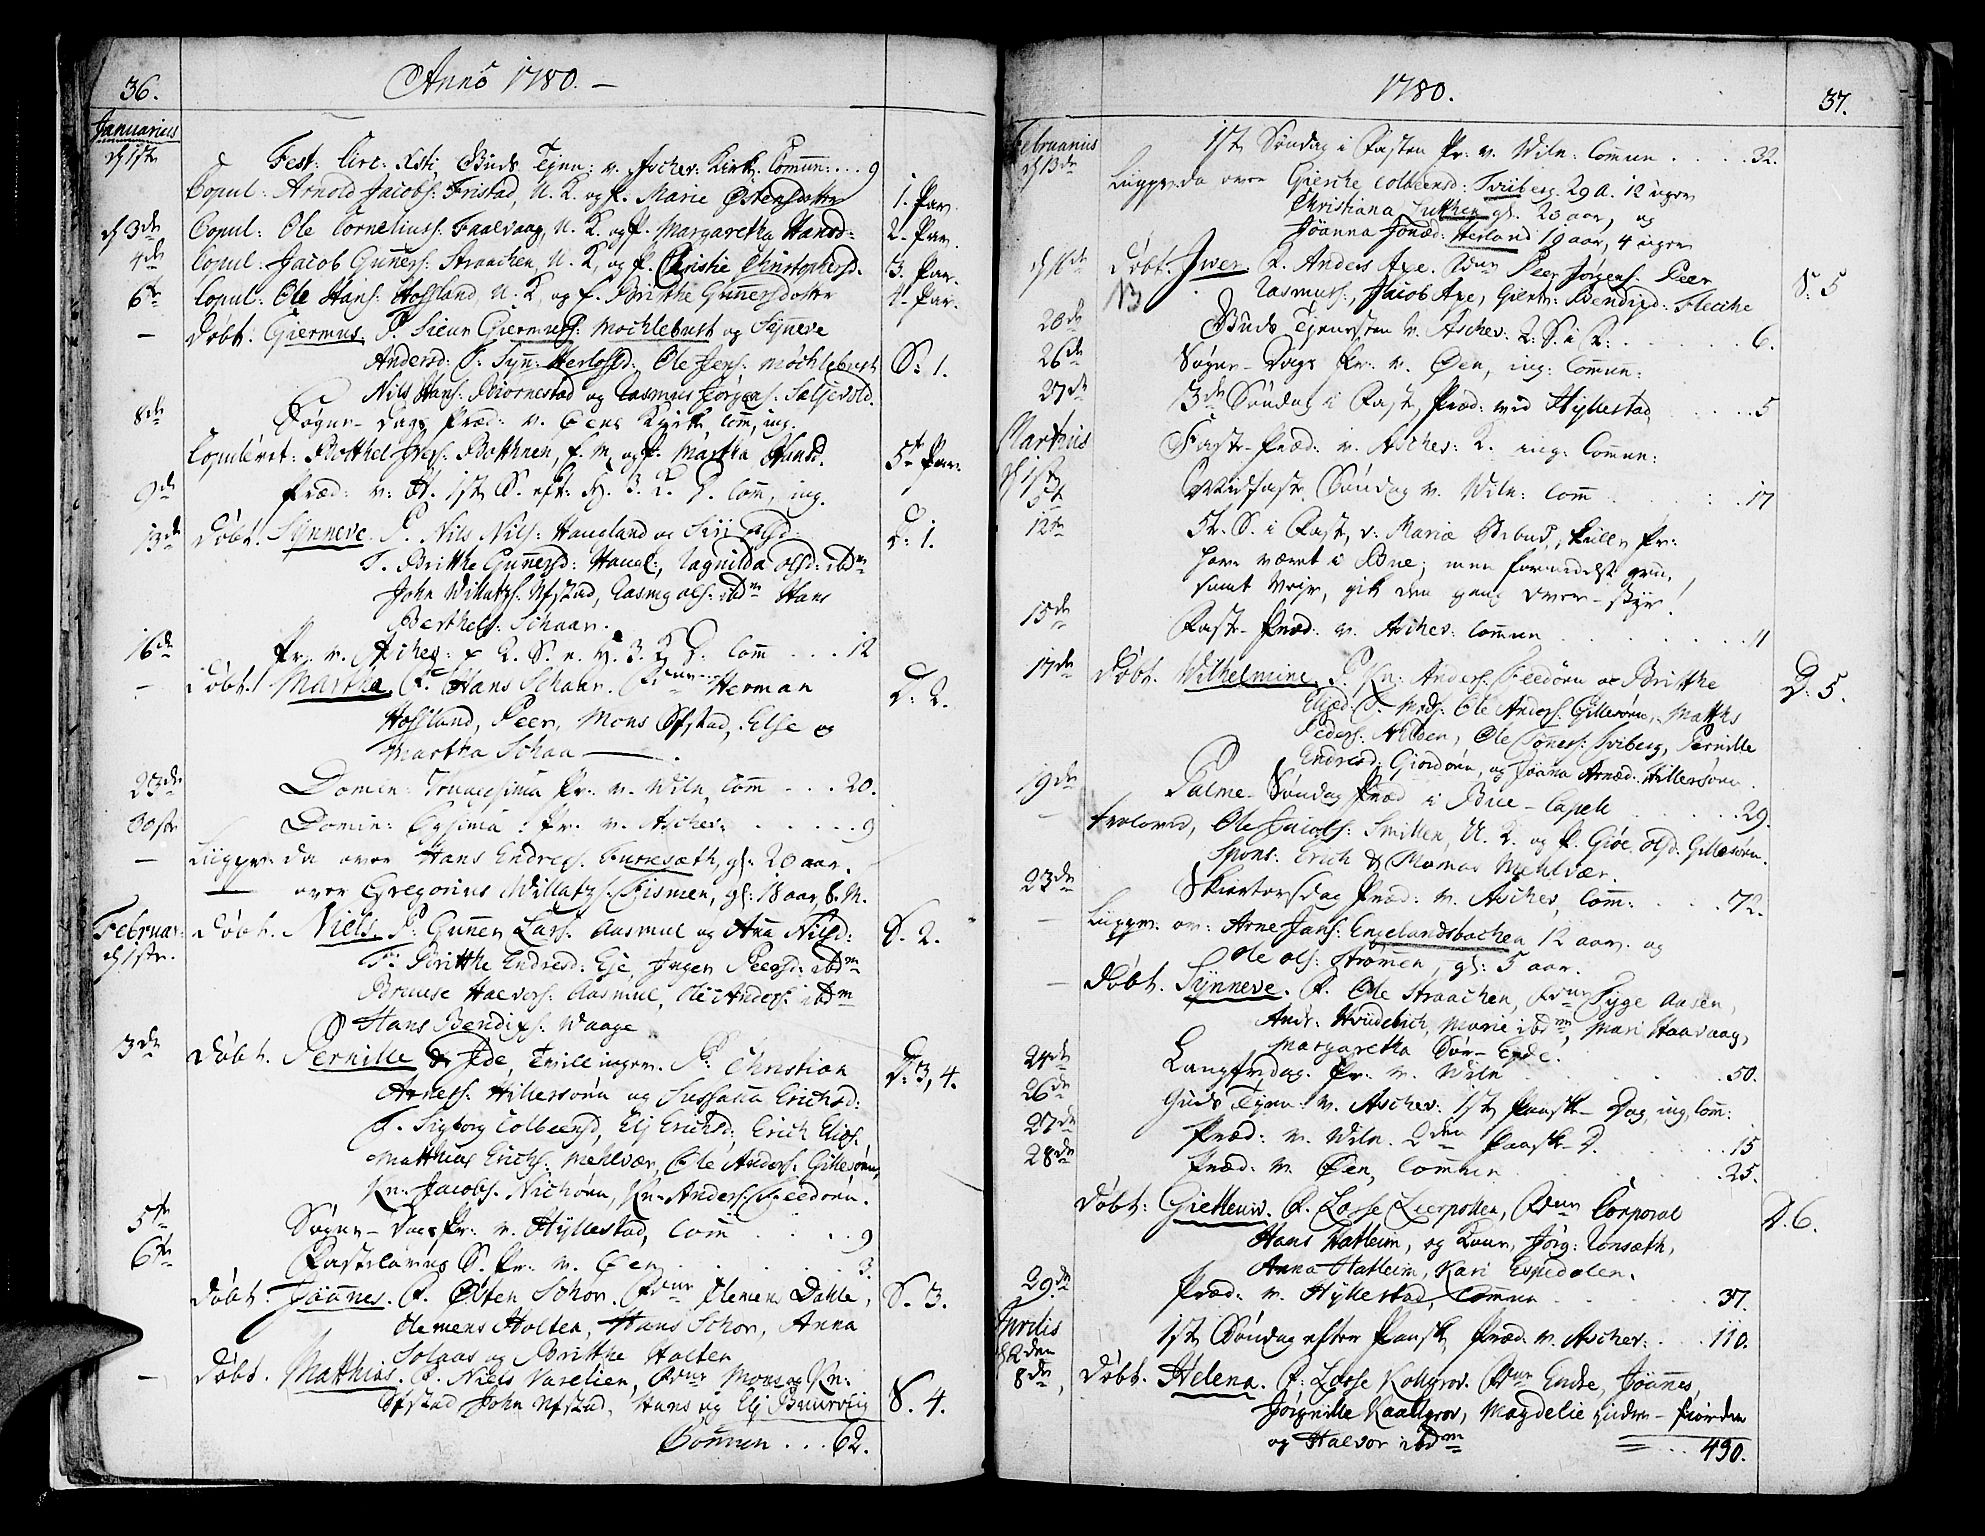 36.
Anno 1780. —
Januarius
d. 1ste
Fest: Circ: Xsti, Guds Tjen: v. Aschev: Kirk, Commun: . . . 9
Copul: Arnold Jacobs: Fristad, U. K. og P. Marie Østensdotter
1. Par.
d. 3de
Copul: Ole Cornelius: Faalevaag, U. K. og P. Margaretha Hansd:
2. Par.
4de
Copul: Jacob Guners: Straachen, U. K, og P. Christie Christophersd.
3. Par.
6te
Copul: Ole Hans: Hofland, U. K, og P. Brithe Gunersdotter
4. Par.
—
Døbt: Giermus. P. Sieur Giermuss: Mochlebust og Synneve
Andersd: F. Syn: Herlofsd. Ole Jens: Mochlebust
S: 1.
Nils Hans: Biørnestad og Rasmus Jørgens: Saltevold.
8de
Søgne-Dags Præd: v. Øens Kirk Com, ing.
Copuleret: Botthel Ivers: Botthnen, E. M. og P. Martha Hansd.
5te Par.
9de
Præd: v. H. 1ste S. eft: H. 3. K. D. Com, ing.
13de
Døbt. Synneve. P. Nils Nils: Haugland og Siri Olsd:
D: 1.
F. Britthe Gunersd: Haugl:, Ragnilda Olsd: ibdm
John Willatzs. Ufstad, Rasmus Ols: ibdm Hans
Berthels: Schaar.
16de
Pr. v. Aschev: 2. S. e. H. 3. K. D. Com . . . 12
—
Døbt. Martha. P. Hans Schaar. Fdur Herman
D: 2.
Hofland, Peer, Mons Ofstad, Else og
Martha Schaa —.
23de
Domin: Septuagesima Pr. v. Wiln, Com . . . 20.
30ste
Domin: Sexagesima: Pr. v. Aschev: . . . . . 9
—
Liigpr. da over Hans Endres: Furesæth, gl: 20 aar.
over Gregorius Willatzs: Risnen, gl: 18 aar, 8. M.
Februar:
d. 1ste.
Døbt. Niels. P: Guner Lars. Aasmul og Ana Nilsd:
S. 2.
F: Britthe Endresd: Eje, Inger Peersd: ibdm
Bruuse Halvers: Aasmul, Ole Anders: ibdm
Hans Bendixs: Waage
3de
Døbt. Pernille & Ide, Tvillinger. P: Christian
D: 3, 4.
Arness. Hillersøen og Sussana Erichsd:
F. Sigborg Colbeensd, Elj Erichsd: Erich Elias:
Matthias Erichs: Mehlvær, Ole Anders: Gillesøen,
Kn: Jacobs. Nichøen, Kn: Anders: Feedøen.
5te
Søgne-Dags Pr: v. Hyllestad, Com . . . 9
6te
Fastelavns S. Pr. v. Øen . . . . . . 3.
Døbt: Joanes. P. Østen Schor. Fdur Clemens Dahle,
S. 3.
Clemens Holten, Hans Schor, Anna
Solaas og Britthe Holten
—
Døbt. Matthias. P. Niels Varelien, Fdur Mons og Kn:
S. 4.
Ofstad John Ufstad, Hans og Elj Buurviig
Comun . . . 62.
1780.
37.
Februarius
d. 13de
1ste Søndag i Fasten Pr: v. Wiln: Comun . . . . . 32.
Liigpr. da over Giertrue Colbeensd: Sviberg. 29 A. 12 uger
Christiana Jutthen gl. 23 aar, og
Jöanna Jonæd: Herland 19 aar, 4 uger
d. 16de
Døbt. Iver. P. Anders Axe. Fdur Peer Jørgens: Peer
S: 5
NB
Rasmus:, Jacob Axe, Giertr: Bendixd: Flecke
20de
Guds Tjenesten v. Aschev: 2. S. i F. . . . . . 6.
26de
Søgne-Dags Pr: v. Øen, ing: Comun:
27de
3de Søndag i Fast, Præd: ved Hyllestad . . . . . 5
Martius
d. 1ste
Faste-Præd: v. Aschev: K. ing: Comun:
5te
Midfaste Søndag v. Wiln: Com . . . 17
12te
5te S. i Fast, v: Mariæ Bebud, skulle Pr:
have været i Bue; men formedelst grue,
samt Vejr, gik den gang over-styr!
15de
Faste-Præd: v. Aschev: Comun . . . . . . 11
17de
Døbt. Wilhelmine. P. Kn: Anders. Feedøen og Britthe
D: 5.
Eliæd. F. Mads: Ole Anders: Gillesøen, Matths
Peders: Nilden, Ole Joness: Sviberg, Pernille
Endresd: Giordøen, og Joana Arnæd: Hillersøen
19de
Palme-Søndag Præd i Bue-Capell . . . . . . 29.
—
Trolovd, Ole Jacobs: Smillen, U. K. og P. Giøe Olsd: Gillesøen.
Spons: Erich & Thomas Mehlvær.
23de
Skiertorsdag Præd: v. Aschev, Com: . . . . 72.
—
Liigpr. ov: Arne Jans: Engelandsbachen 12 aar. og
Ole Ols: Strømen, gl: 5 aar.
—
Døbt. Synneve. P. Ole Straachen, Fdur Syge Aasen,
Andr: Hvidebich, Marie ibdm, Mari Haavaag,
Margaretha Sør-Eyde.
24de
Langfredag. Pr. v. Wiln . . . . . . 50.
26de
Guds Tjen: v. Aschev: 1ste Paask-Dag, ing, Com:
27de
Præd: v. Wiln. 2den Paask-D. . . . . . 15
28de
Præd: v. Øen, Comun . . . . . . 25.
Døbt: Giettend. P. Lasse Leerpollen, Fdur Corporal
D. 6.
Hans Hatleim, og Knud, Jørg: Tonsæth,
Anna Hatleim, Kari Espedalen.
29de
Præd: v. Hyllestad, Comun . . . . . . 37.
Aprilis
d. 2den
1ste Søndag efter Paask Præd: v. Aschev: . . . 110.
8de
Døbt. Helena. P. Lasse Kolgrov. Fdur Endre, Jöannes,
Jörgnille Kaalgrov, Magdelie Inder-Fiorden
og Halvor ibdm
= . . . 490.